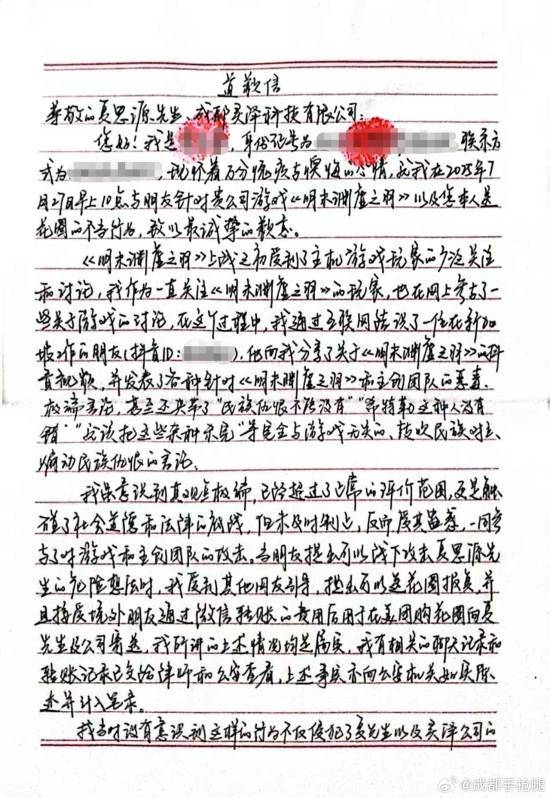 道歉信
尊敬的夏思源先生、成都灵泽科技有限公司:
您好!我是 ,身份证号为 联系方
式为 ,现怀着万分愧疚与懊悔的心情,为我在2025年7
月27日早上10点与朋友针对贵公司游戏《明末渊虚之羽》以及您本人送
花圈的不当行为,致以最诚挚的歉意。
《明末渊虚之羽》上线之初受到了主机游戏玩家的广泛关注
和讨论,我作为一直关注《明末渊虚之羽》的玩家,也在网上参与了一
些关于游戏的讨论,在这个过程中,我通过互联网结识了一位在新加
坡工作的朋友(抖音ID: ),他向我分享了关于《明末渊虚之羽》的抖
音视频,并发表了各种针对《明末渊虚之羽》和主创团队的恶毒、
极端言论,甚至还夹带了“民族仇恨不能没有”“希特勒这种人没有
错”“应该把这些杂种杀完”等完全与游戏无关的、挑起民族对立、
煽动民族仇恨的言论。
我虽意识到其观点极端,已经超过了正常的评价范围,更是触
碰了社会道德和法律的底线,但未及时制止,反而受其蛊惑,一同参
与了对游戏和主创团队的攻击。当朋友提出可以线下攻击夏思源先
生的危险想法时,我受到其他网友引导,提出可以送花圈报复,并
且接受境外朋友通过微信转账的费用后用于在美团购花圈向夏
先生及公司寄送,我所讲的上述情况均是属实,我有相关的聊天记录和
转账记录已交给律师和公安查看,上述事实亦向公安机关如实陈
述并计入笔录。
我当时没有意识到这样的行为不仅侵犯了夏先生以及灵泽公司的
@成都手枪腿